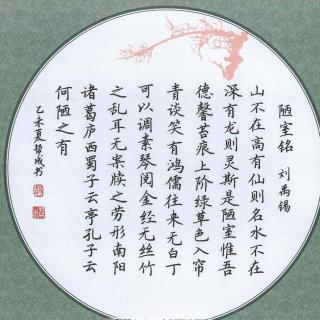 陋室铭 刘禹锡
山不在高有仙则名水不在
深有龙则灵斯是陋室惟吾
德馨苔痕上阶绿草色入帘
青谈笑有鸿儒往来无白丁
可以调素琴阅金经无丝竹
之乱耳无案牍之劳形南阳
诸葛庐西蜀子云亭孔子云
何陋之有
乙未夏